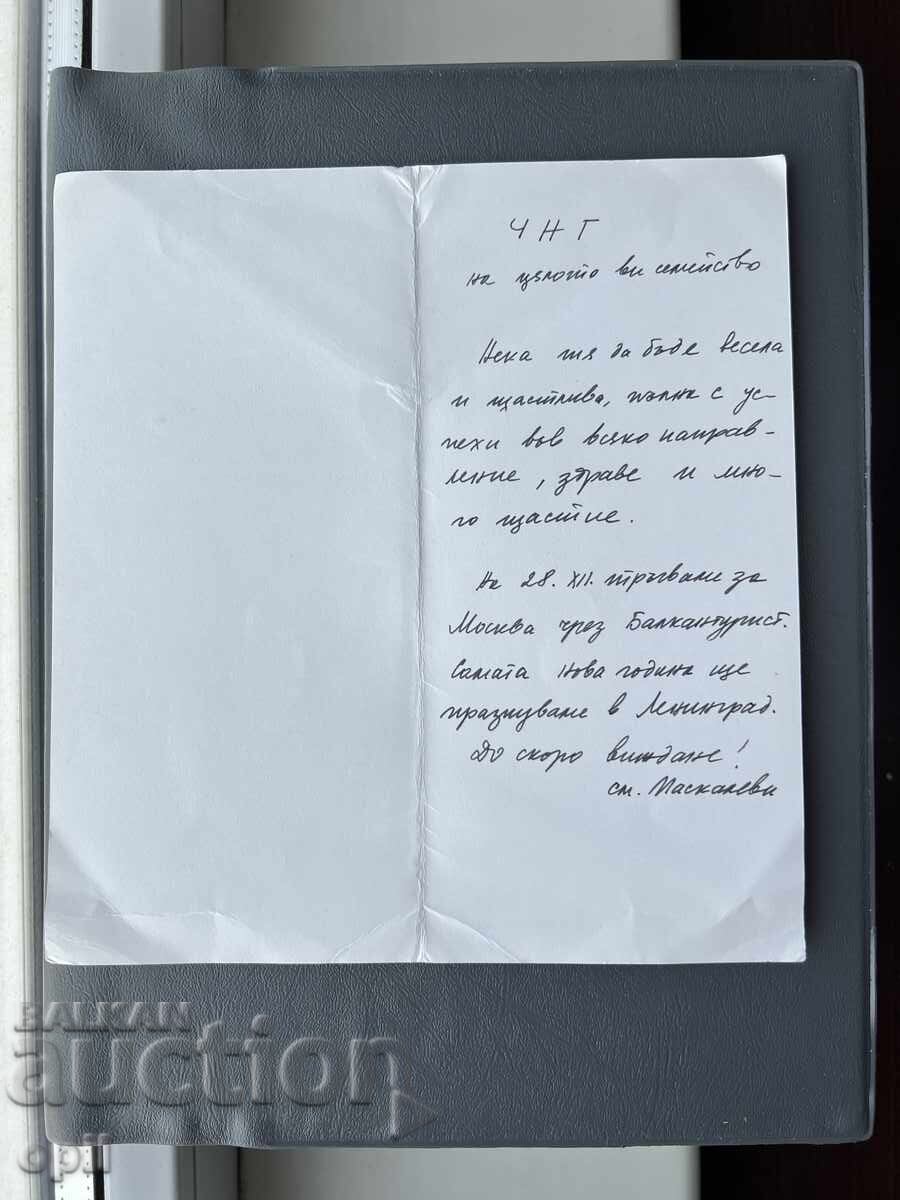 ЧНГ
на цялото ви семейство
Нека тя да бъде весела
и щастлива, пълна с ус-
пехи във всяко направ-
ление, здраве и мно-
го щастие.
На 28. XII. тръгваме за
Москва чрез Балкантурист.
Самата нова година ще
празнуваме в Ленинград.
До скоро виждане!
см. Маскалеви
BALKAN
auction
opil